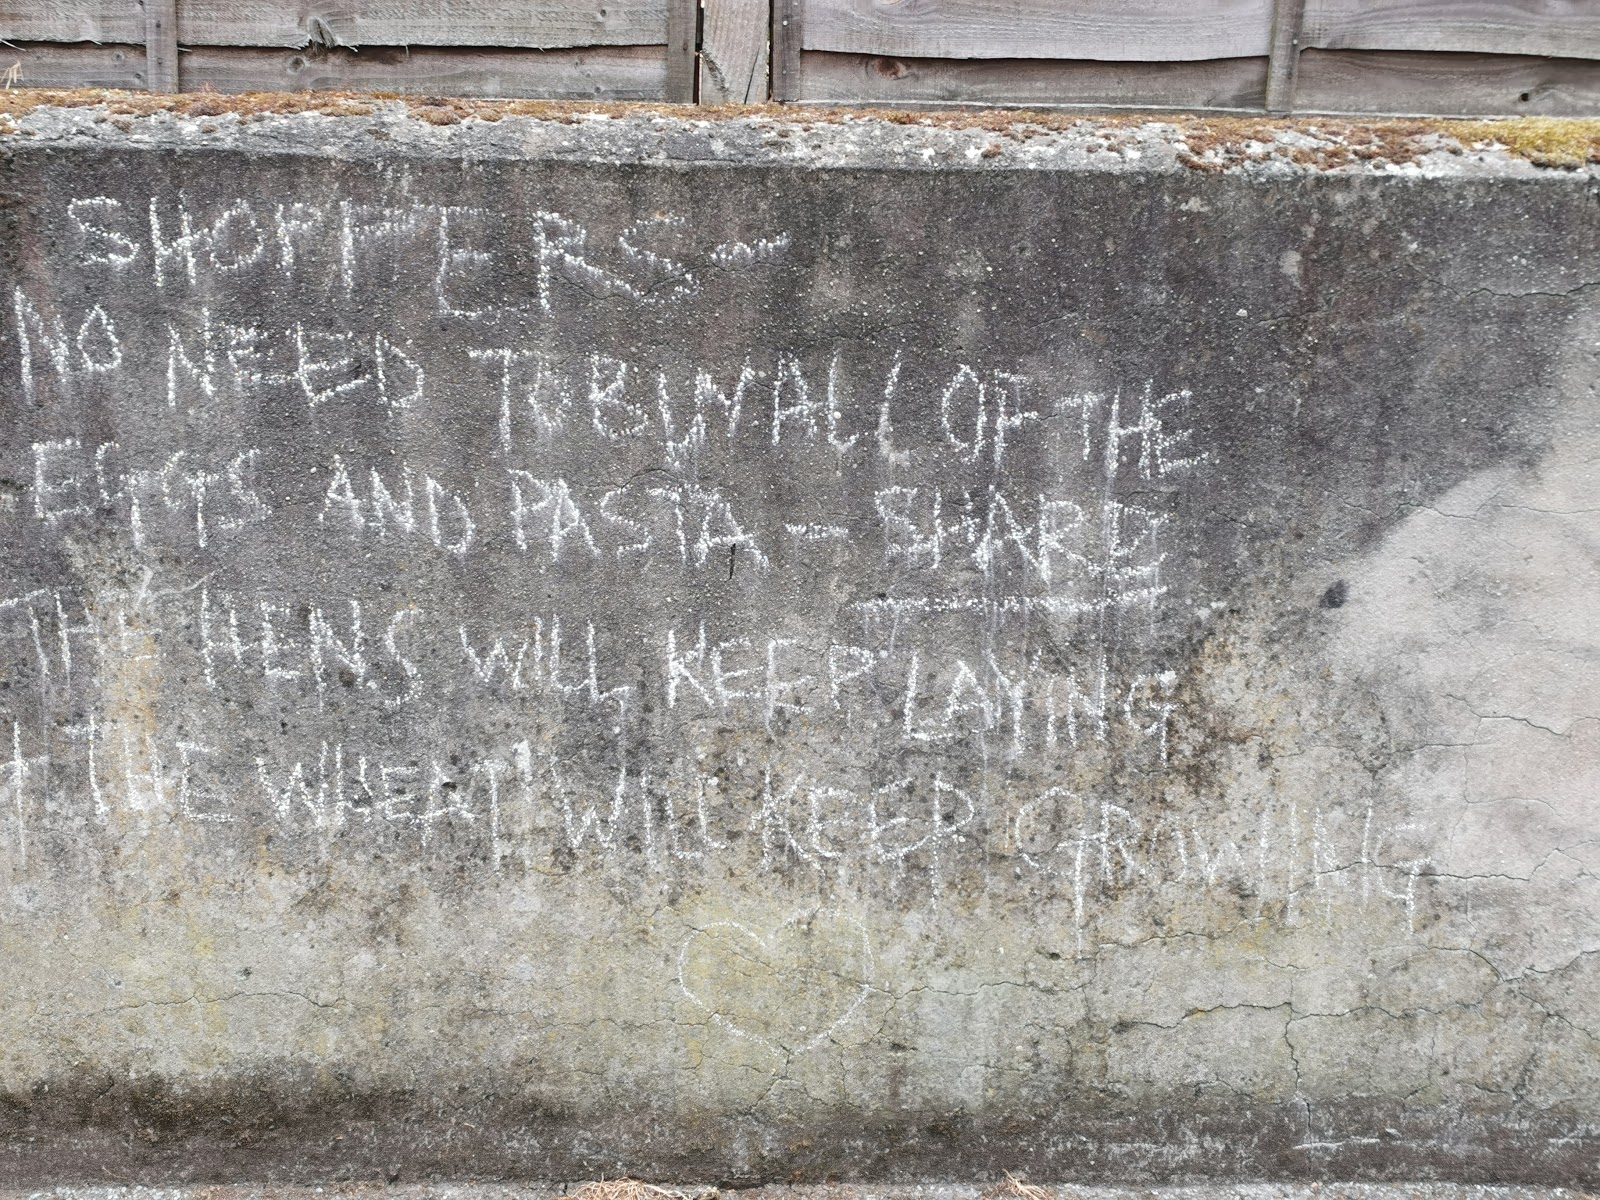 SHOPPERS —
NO NEED TO BUY ALL OF THE
EGGS AND PASTA - SHARE
THE HENS WILL KEEP LAYING
+ THE WHEAT WILL KEEP GROWING